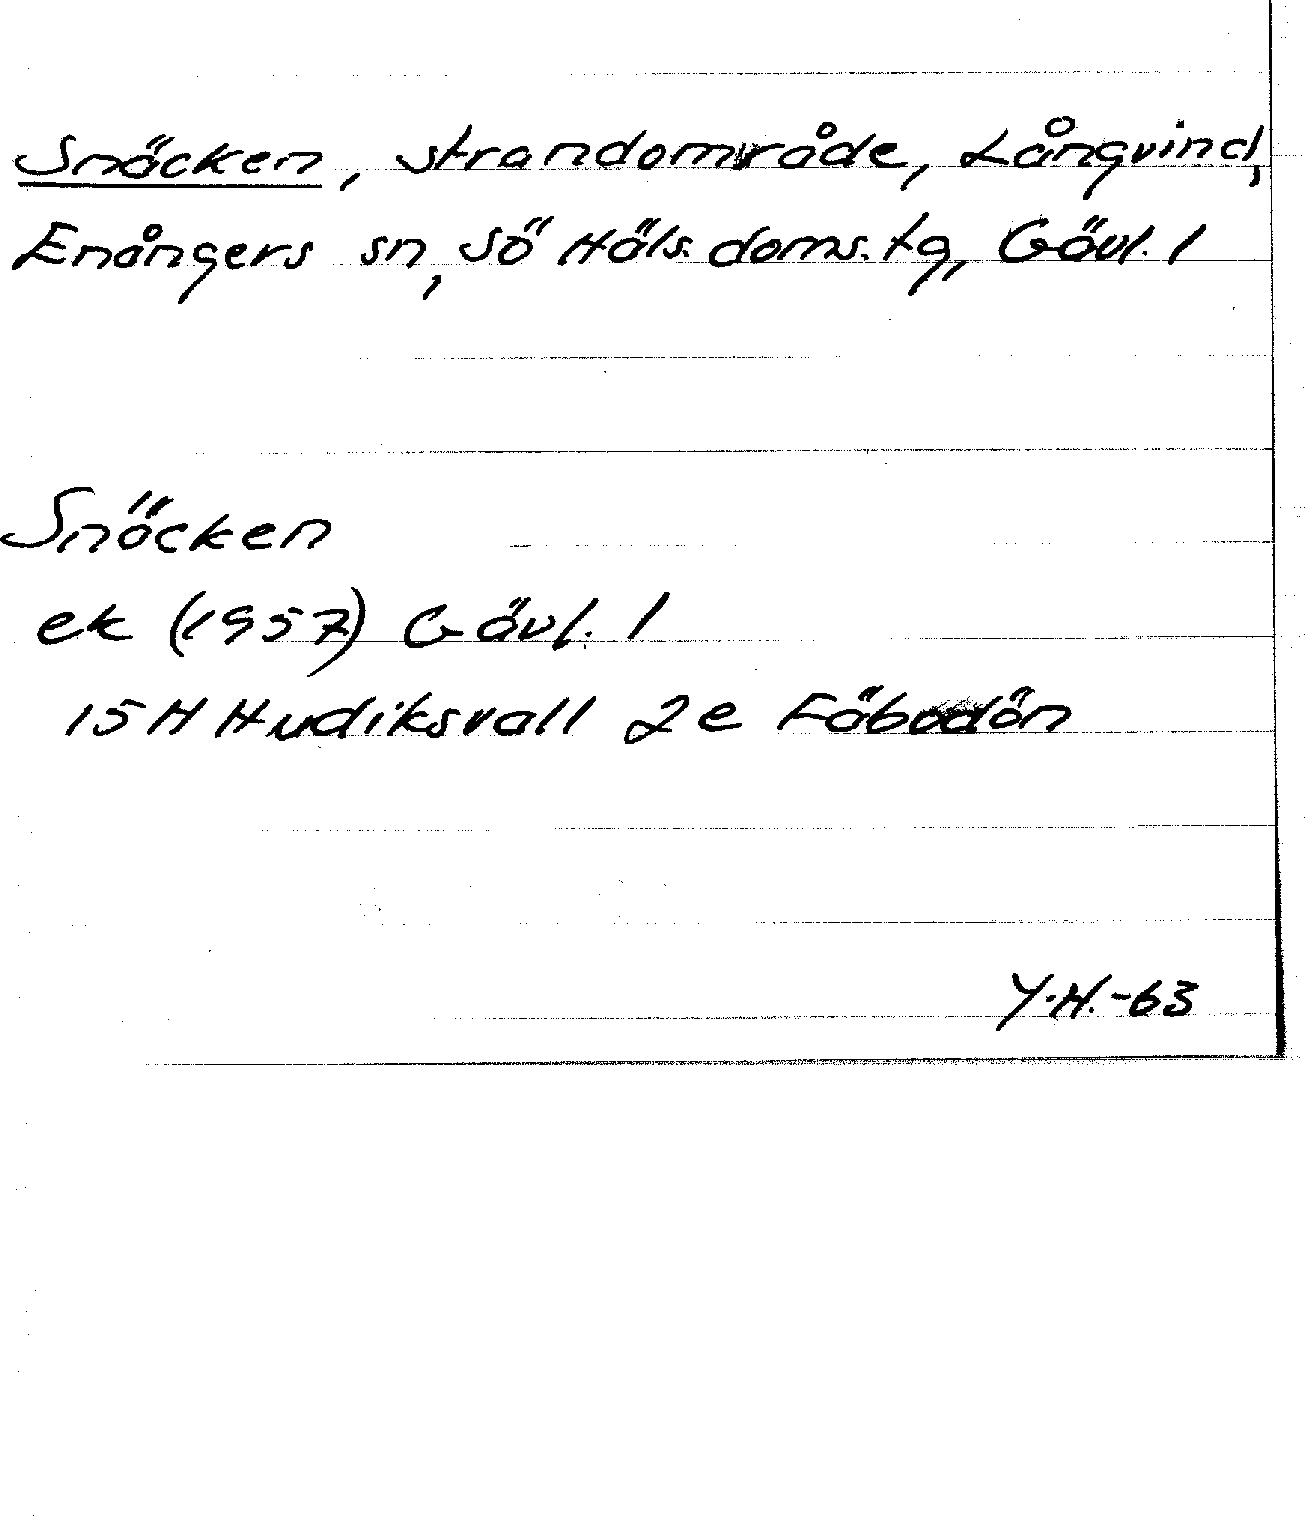 Snäcken, strandområde, Långvind,
Enångers sn, Sö Häls. doms. tg, Gävl. l
Snäcken
ek (1957) Gävl. l
15H Hudiksvall 2e Fäbodön
Y.H.-63